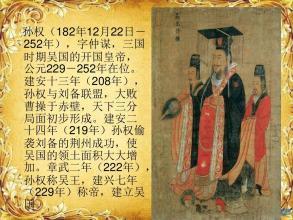 孙权(182年12月22日—
252年),字仲谋,三国
时期吴国的开国皇帝,
公元229－252年在位。
建安十三年(208年),
孙权与刘备联盟,大败
曹操于赤壁,天下三分
局面初步形成。建安二
十四年(219年)孙权偷
袭刘备的荆州成功,使
吴国的领土面积大大增
加。章武二年(222年),
孙权称吴王,建兴七年
(229年)称帝,建立吴
国